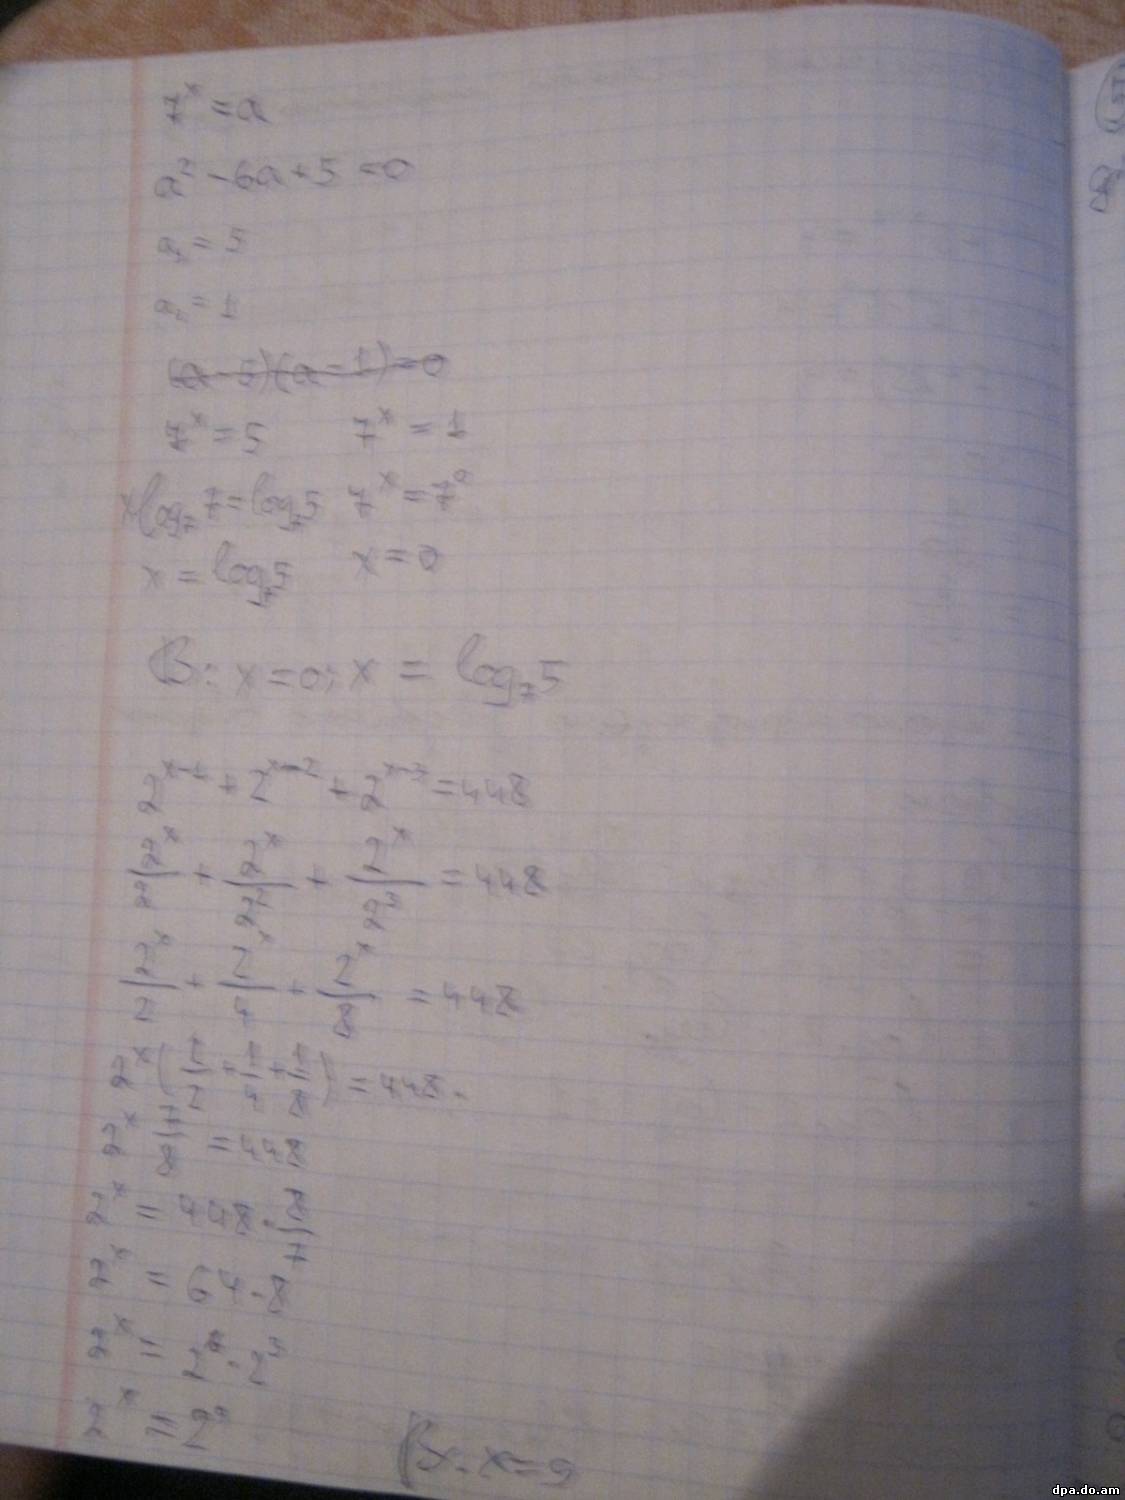 7^x = a
a² - 6a + 5 = 0
a₁ = 5
a₂ = 1
(a - 5)(a - 1) = 0
7^x = 5 7^x = 1
x log₇ 7 = log₇ 5 7^x = 7^0
x = log₇ 5 x = 0
В: x = 0; x = log₇ 5
2^(x-1) + 2^(x-2) + 2^(x-3) = 448
2^x/2 + 2^x/2² + 2^x/2³ = 448
2^x/2 + 2^x/4 + 2^x/8 = 448
2^x (1/2 + 1/4 + 1/8) = 448.
2^x 7/8 = 448
2^x = 448 · 8/7
2^x = 64 · 8
2^x = 2^6 · 2^3
2^x = 2^9
В: x = 9
dpa.do.am